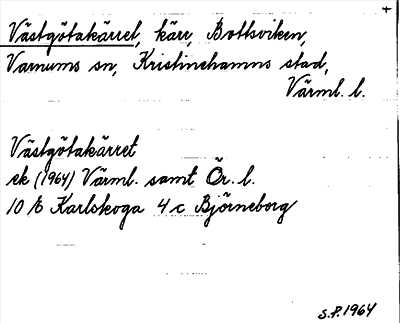 Västgötakärret, kärr, Bottsviken,
Varnums sn, Kristinehamns stad,
Värml. l.
Västgötakärret
ek (1964) Värml. samt Ör. l.
10 E Karlskoga 4 c Björneborg
S.P. 1964